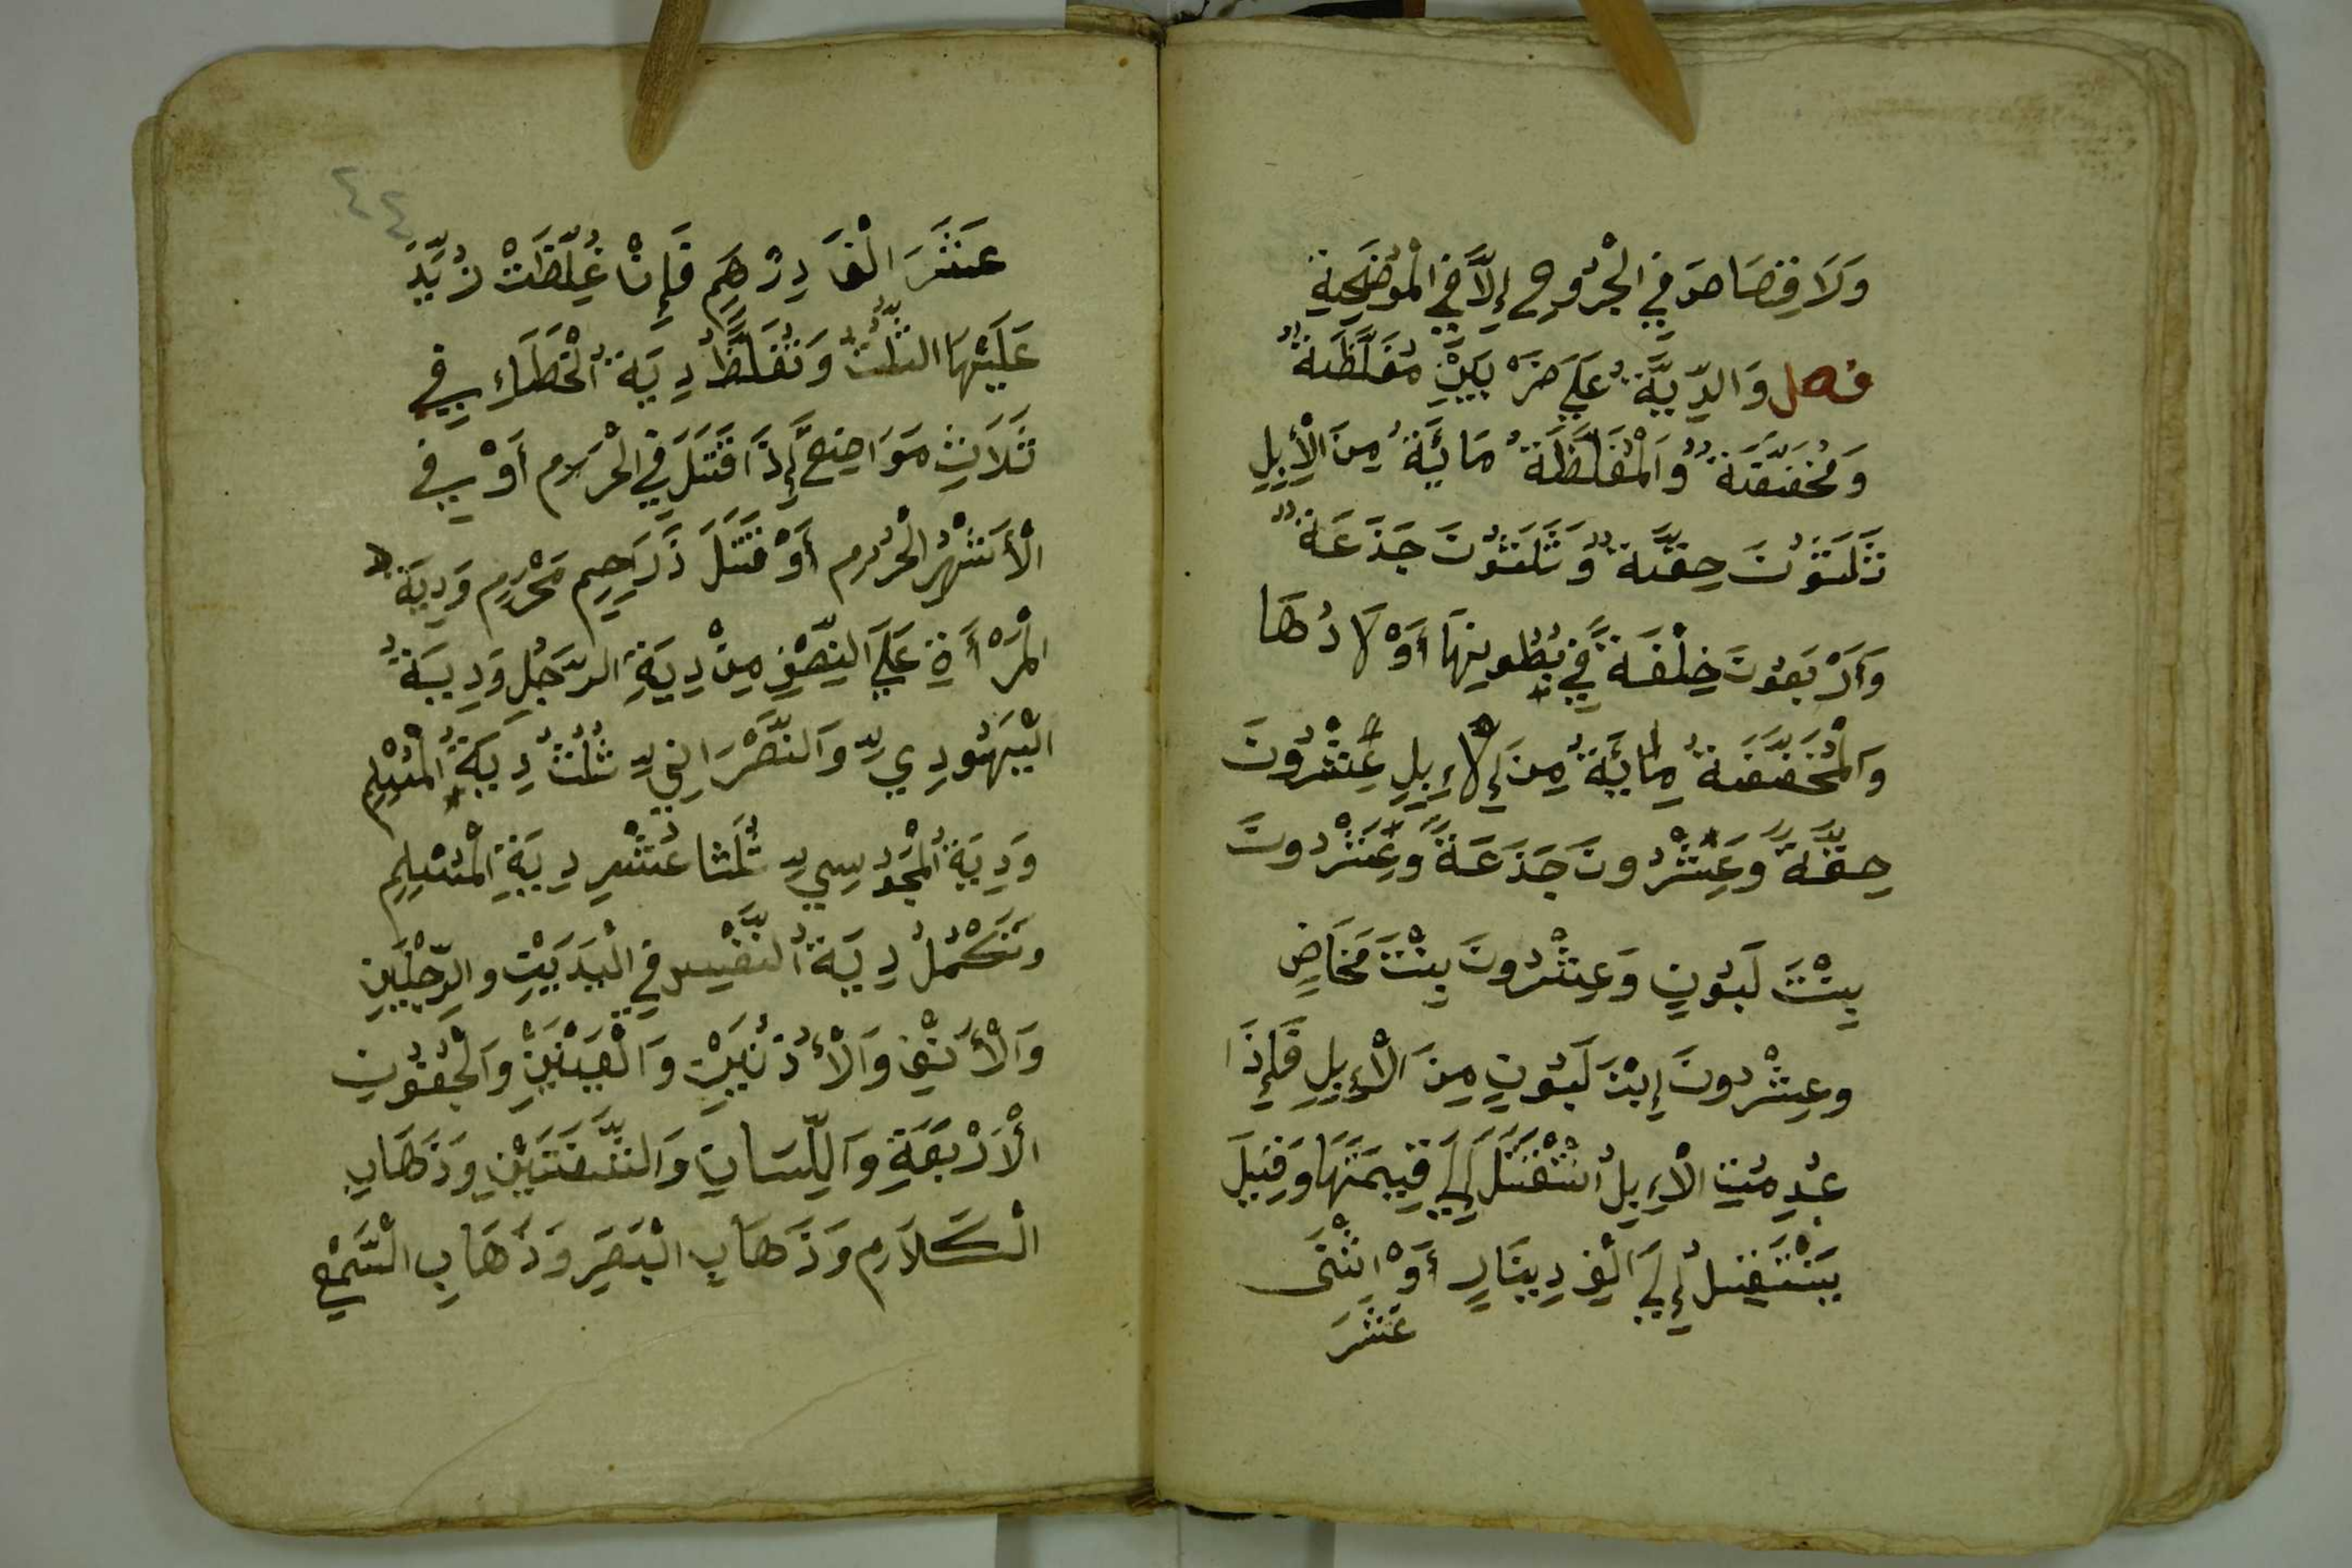 وَلَا قِصَاصَ فِي الْجُرُوحِ إِلَّا فِي الْمُوْضِحَةِ
فصل وَالدِّيَّةُ عَلَى ضَرْبَيْنِ مُغَلَّظَةٌ
وَمُخَفَّفَةٌ وَالْمُغَلَّظَةُ مَائَةٌ مِنَ الْأِبِلِ
ثَلَثُوْنَ حِقَّةٌ وَثَلَثُوْنَ جَذَعَةٌ
وَأَرْبَعُوْنَ خِلْفَةً فِي بُطُونِهَا أَوْلَادُهَا
وَالْمُخَفَّفَةُ مِائَةٌ مِنَ الْإِبِلِ عِشْرُونَ
حِقَّةً وَعِشْرُونَ جَذَعَةً وَعِشْرُونَ
بِنْتَ لَبُوْنٍ وَعِشْرُونَ بِنْتَ مَخَاضٍ
وعِشْرُونَ إِبْنَ لَبُوْنٍ مِنَ الْإِبِلِ فَإِذَا
عُدِمَتِ الْإِبِلُ انْتُقِلَ إِلَى قِيمَتِهَا وَقِيلَ
يَنْتَقِلُ إِلَى أَلْفِ دِينَارٍ أَوْ اثْنَى
عَشَرَ
٤٤
عَشَرَ الْفَ دِرْهَمٍ فَإِنْ غُلِّظَتْ زُيِّدَ
عَلَيْهَا الثُّلُثُ وَتُغَلَّظُ دِيَةُ الْخَطَاءِ فِي
ثَلَاثِ مَوَاضِعَ إِذَا قَتَلَ فِي الْحَرَامِ أَوْ فِي
الْأَشْهُرِ الْحُرُمِ أَوْ قَتَلَ ذَا رَحِمٍ مَحْرَمٍ وَدِيَةُ
الْمَرْأَةِ عَلَى النِّصْفِ مِنْ دِيَةِ الرَّجُلِ وَدِيَةُ
الْيَهُودِيِّ وَالنَّصْرَانِيِّ ثُلُثُ دِيَةِ الْمُسْلِمِ
وَدِيَةُ الْمَجُوْسِيِّ ثُلَثَا عُشْرِ دِيَةِ الْمُسْلِمِ
وتَكْمُلُ دِيَةُ النَّفْسِ فِي الْيَدَيْنِ وَالرِّجْلَيْنِ
وَالْأَنْفِ وَالْأُذُنَيْنِ وَالْعَيْنَيْنِ وَالْجُفُوْنِ
الْأَرْبَعَةِ وَاللِّسَانِ وَالشَّفَتَيْنِ وَذَهَابِ
الْكَلَامِ وَذَهَابِ الْبَصَرِ وَذَهَابِ السَّمْعِ